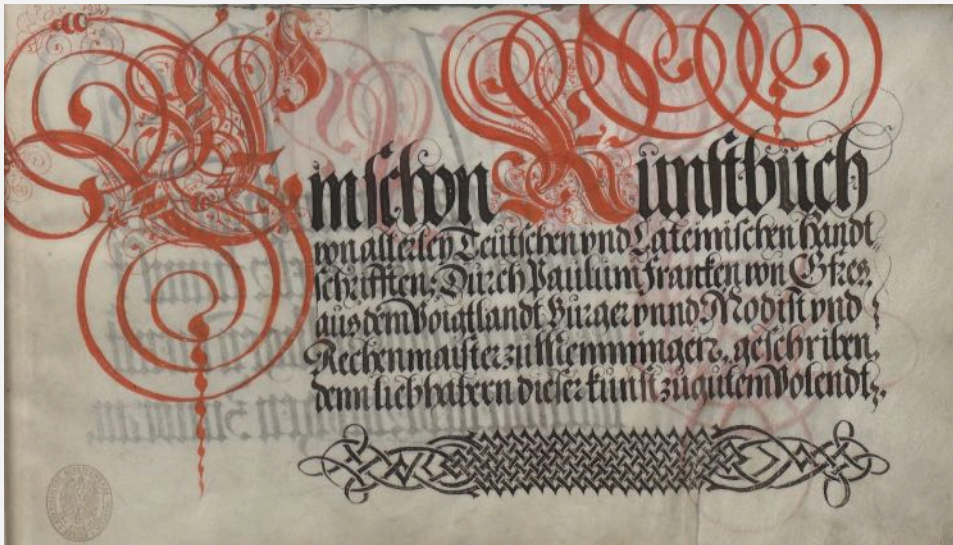 Ein schon Kunstbuch
von allerley Teutschen vnd Lateinischen Handt
schrifften: Durch Paulum Francken von
aus dem Voigtlandt Burger vnnd Modist vnd
Rechenmaister zu Memmingen, geschriben,
denn liebhabern dieser kunst zu gutem Volendt.